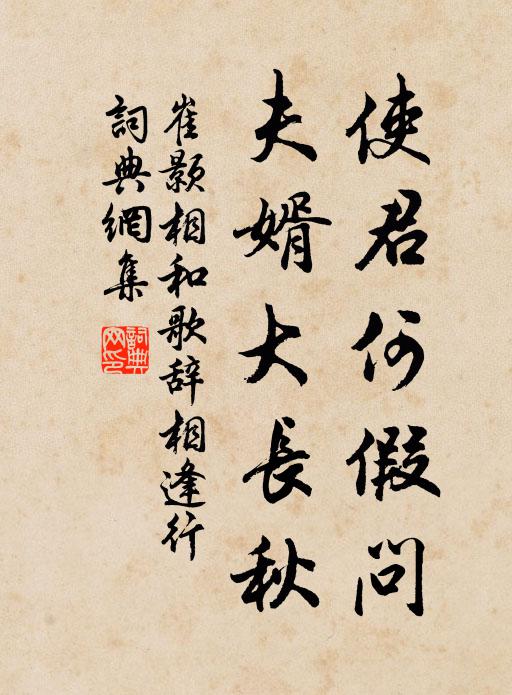 使君何假問
夫婿大長秋
崔顥相和歌辞相逢行
詞典網集
詞典網印